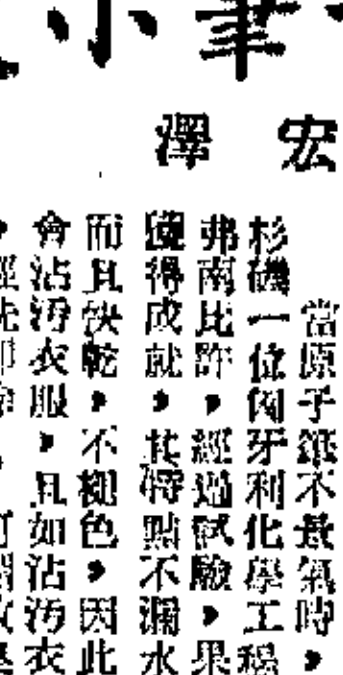 筆小
宏澤
當原子筆不景氣時，
杉磯一位匈牙利化學工程
弗南比許，經過試驗，果
獲得成就，其特點不漏水
而且快乾，不褪色，因此
會沾污衣服，且如沾污衣